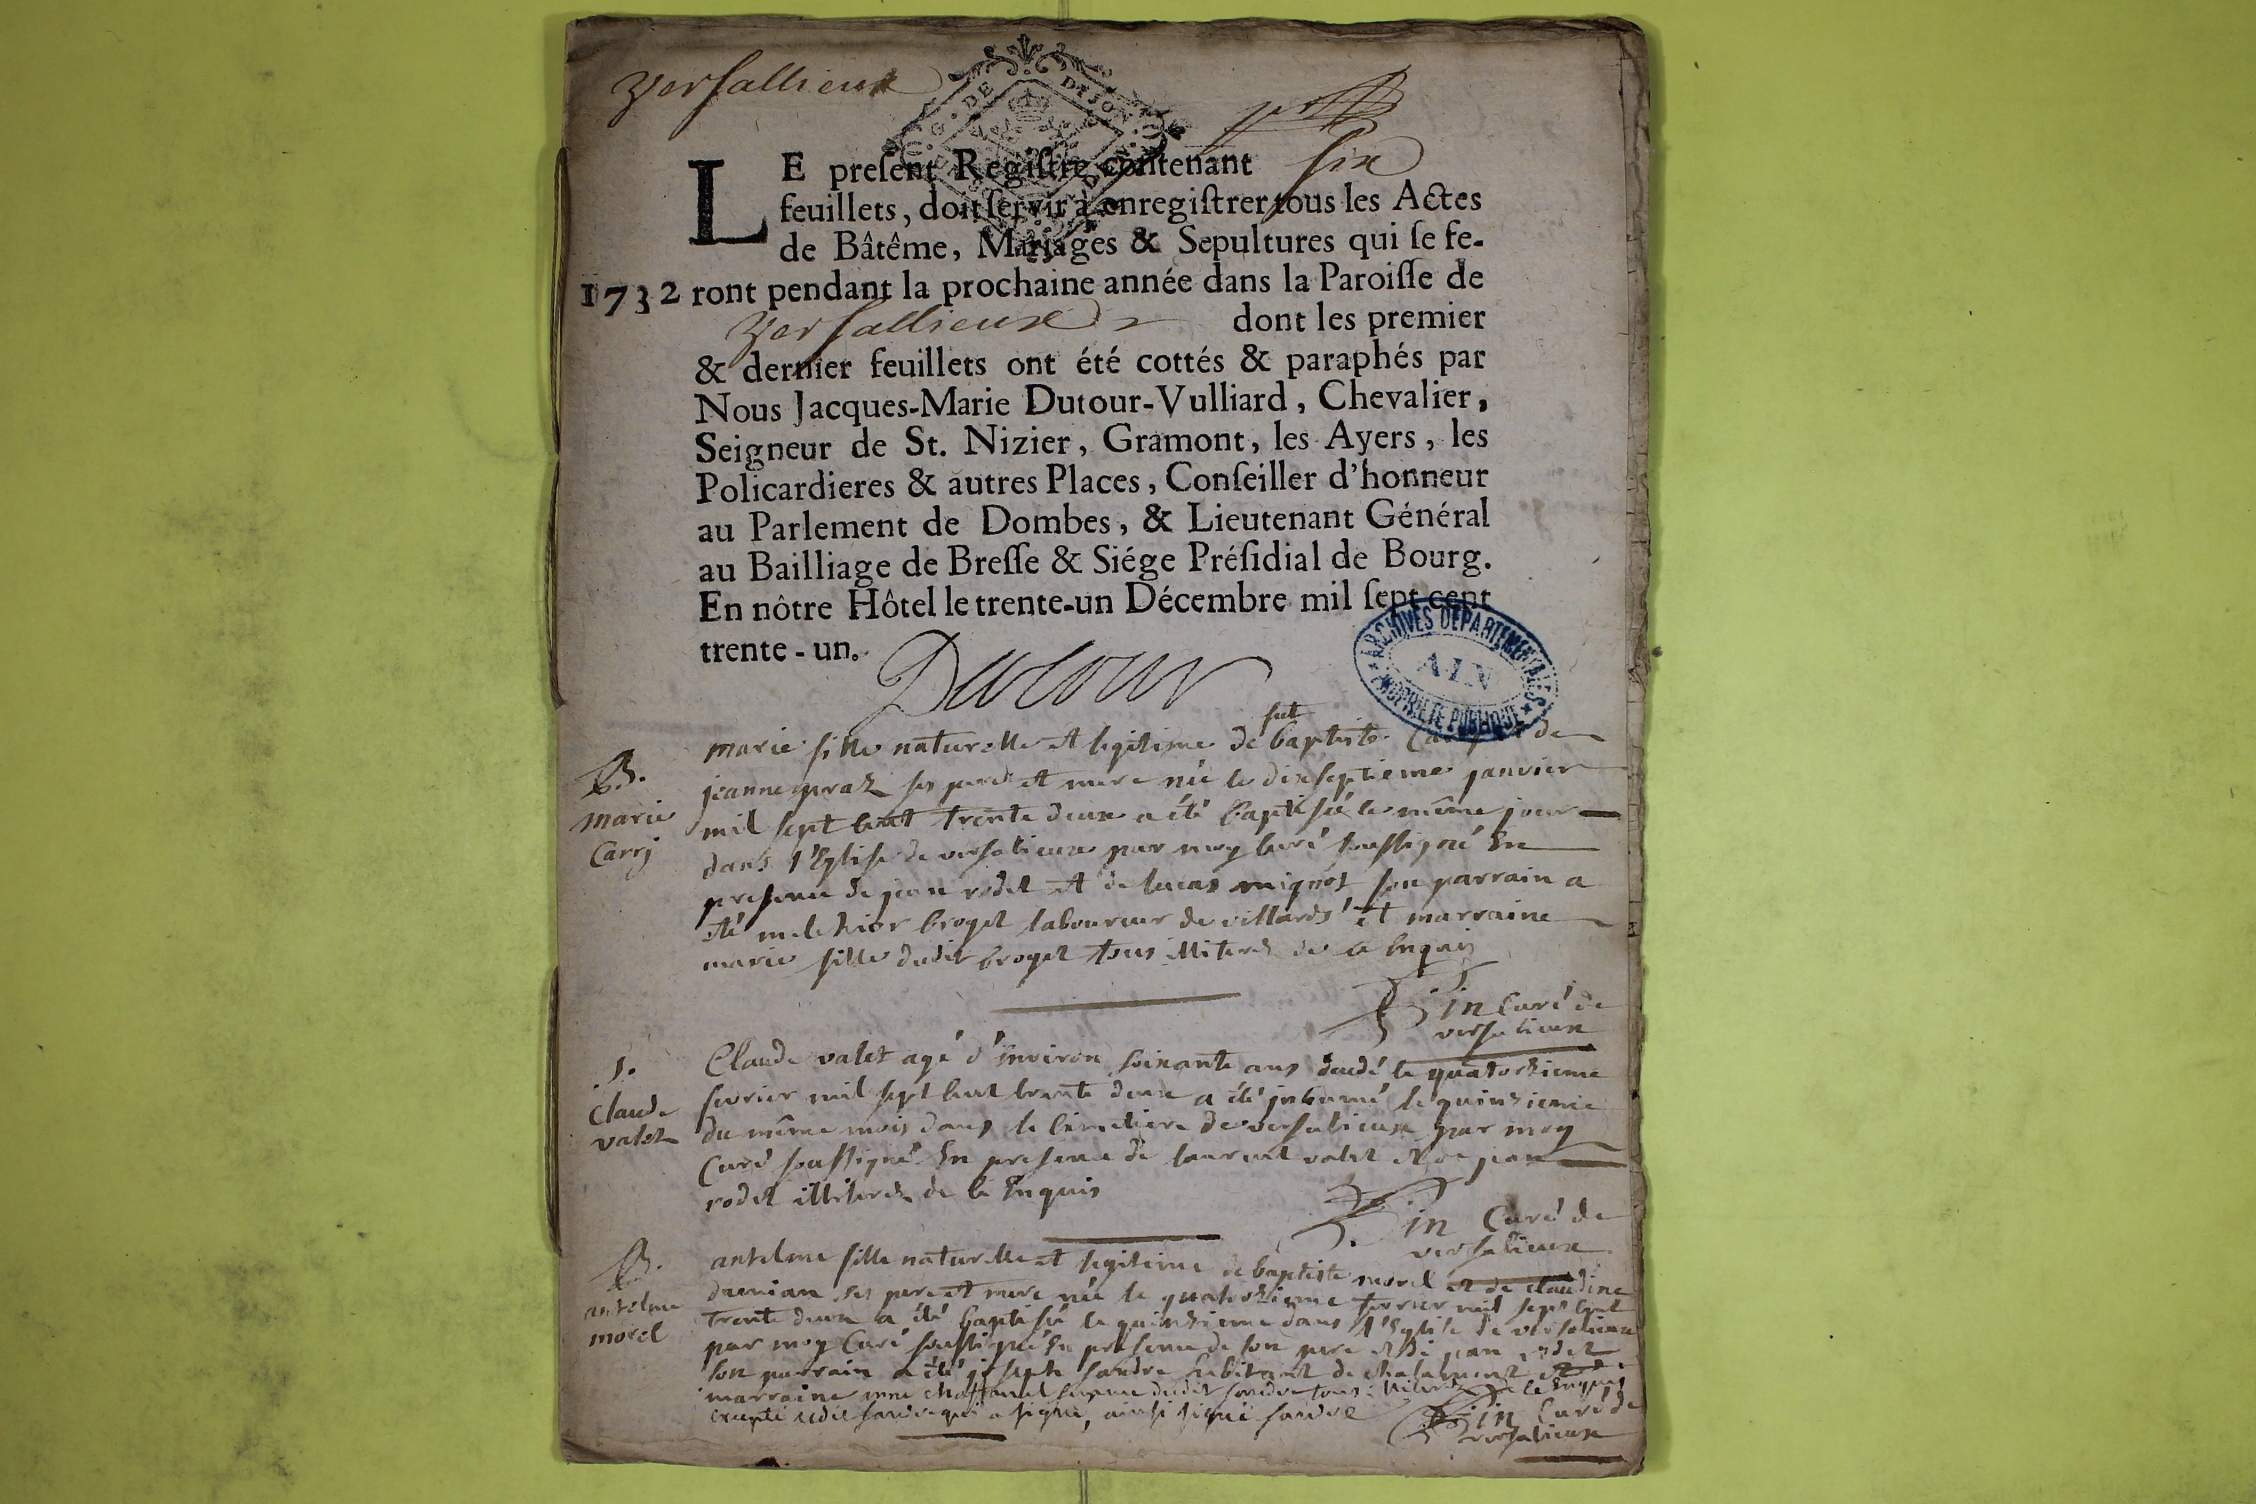 Versallieux
G. DE DIJON
LE present Registre contenant six
feuillets, doit servir à enregistrer tous les Actes
de Bâtême, Mariages & Sepultures qui se fe-
1732 ront pendant la prochaine année dans la Paroisse de
Versallieux dont les premier
& dernier feuillets ont été cottés & paraphés par
Nous Jacques-Marie Dutour-Vulliard, Chevalier,
Seigneur de St. Nizier, Gramont, les Ayers, les
Policardieres & autres Places, Conseiller d'honneur
au Parlement de Dombes, & Lieutenant Général
au Bailliage de Bresse & Siége Présidial de Bourg.
En nôtre Hôtel le trente-un Décembre mil sept cent
trente-un.
Dutour
ARCHIVES DEPARTEMENTALES
AIN
PROPRIETE PUBLIQUE
B.
marie
Carrj
marie fille naturelle et legitime de fut baptiste de
jeanne praz ses pere et mere née le dixseptieme janvier
mil sept cent trente deux a été baptisée le même jour
dans l'Eglise de versalieux par moy Curé soussigné En
presence de jean rodet et de lucas mignot son parrain a
été melchior broyet laboureur de villards et marraine
marie fille dudit broyet tous illiterez de ce Enquis
in Curé de
versalieux
S.
Claude
valet
Claude valet agé d'Environ soixante ans decedé le quatorzieme
fevrier mil sept cent trente deux a été inhumé le quinzieme
du même mois dans le Cimetiere de versalieux par moy
Curé soussigné En presence de laurent valet et de jean
rodet illiterez de ce Enquis
in Curé de
versalieux
B.
antelme
morel
antelme fille naturelle et legitime de baptiste morel et de claudine
damian ses pere et mere née le quatorzieme fevrier mil sept cent
trente deux a été baptisée le quinzieme dans l'Eglise de versalieux
par moy Curé soussigné En presence de son pere et de jean rodet
son parrain a été joseph sandre habitant de chalamont et
marraine femme dudit sandre tous illiterez de ce Enquis
excepté ledit sandre qui a signé, ainsi signé sandre
in Curé de
versalieux